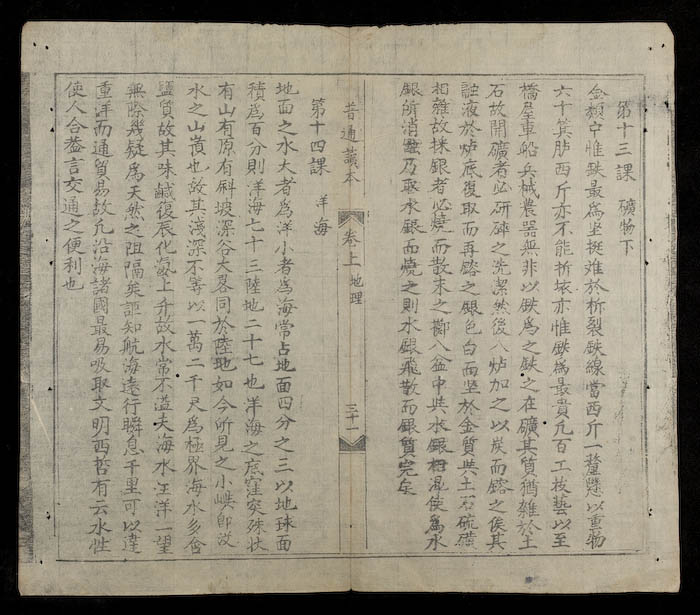 第十三課 礦物下
金類中惟鉄最為坚挺难於析裂鉄線當西斤一釐懸以重物
六十箕胪西斤亦不能折坏亦惟鉄為最貴凢百工技藝以至
橋㞐車船兵械農器無非以鉄為之鉄之在礦其質猶雑於土
石故開礦者必研碎之洗潔然後入炉加之以炭而鎔之俟其
融液於炉底復取而再鎔之銀色白而坚於金質与土石硫磺
相雑故採銀者必燒而散末之擲入盆中与水銀相混使為水
銀所消乃取水銀而燒之則水銀飛散而銀質完矣
普通讀本
卷上 地理
三十一
第十四課 洋海
地面之水大者為洋小者為海常占地面四分之三以地球面
積為百分則洋海七十三陸地二十七也洋海之底窪突殊状
有山有原有斜坡深谷大畧同於陸地如今所見之小嶼即没
水之山嵿也故其淺深不等以一萬二千尺為極界海水多含
鹽質故其味鹹復辰化氣上升故水常不溢夫海水汪洋一望
無際幾疑為天然之阻隔矣詎知航海遠行瞬息千里可以達
重洋而通貿易故凢沿海諸國最易吸取文明西哲有云水性
使人合葢言交通之便利也